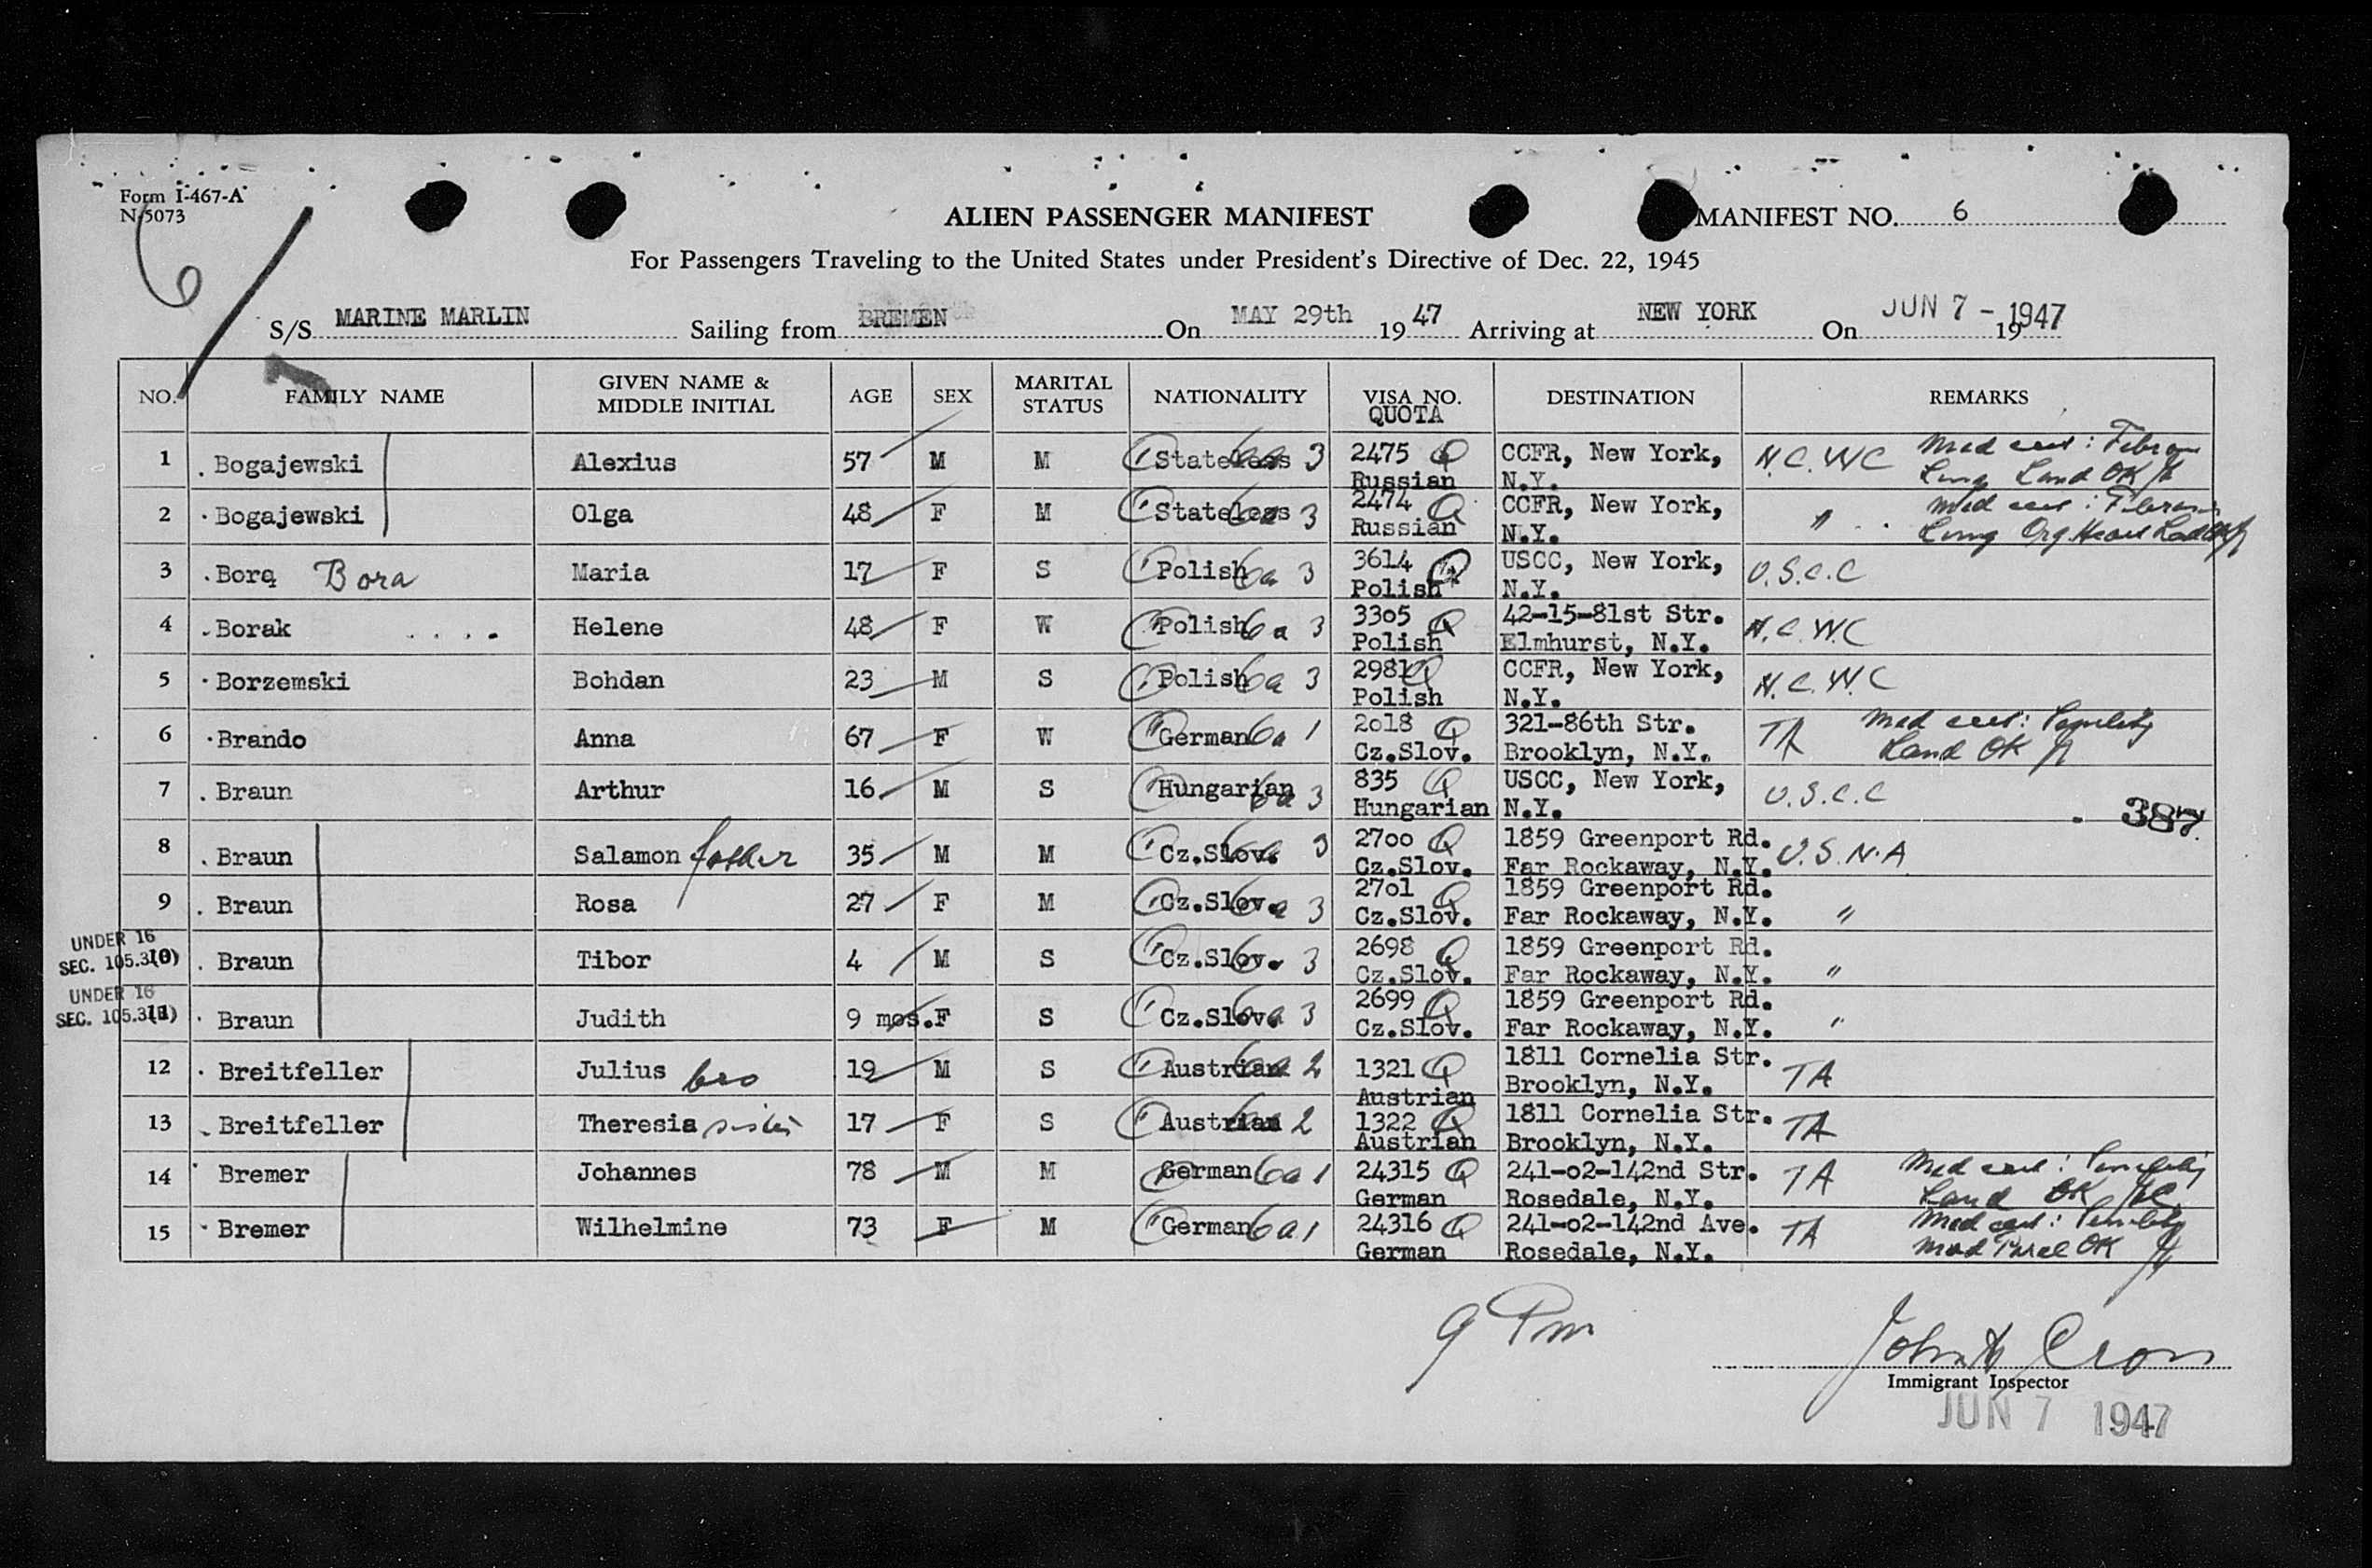 Form I-467-A
N-5073
6
ALIEN PASSENGER MANIFEST
MANIFEST NO. 6
For Passengers Traveling to the United States under President's Directive of Dec. 22, 1945
S/S MARINE MARLIN Sailing from BREMEN On MAY 29th 1947 Arriving at NEW YORK On JUN 7 - 1947
NO. FAMILY NAME GIVEN NAME & MIDDLE INITIAL AGE SEX MARITAL STATUS NATIONALITY VISA NO. QUOTA DESTINATION REMARKS
1 Bogajewski Alexius 57 M M Stateless 6a 3 2475 Q CCFR, New York, N.C.W.C Med cert:
Russian N.Y. Lung Land OK
2 Bogajewski Olga 48 F M Stateless 6a 3 2474 Q CCFR, New York, " Med cert:
Russian N.Y. Lung Org Heart
3 Borą Bora Maria 17 F S Polish 6a 3 3614 Q USCC, New York, U.S.C.C
Polish N.Y.
4 Borak Helene 48 F W Polish 6a 3 3305 Q 42-15-81st Str. N.C.W.C
Polish Elmhurst, N.Y.
5 Borzemski Bohdan 23 M S Polish 6a 3 2981 Q CCFR, New York, N.C.W.C
Polish N.Y.
6 Brando Anna 67 F W German 6a 1 2018 Q 321-86th Str. TA Med cert: Senility
Cz.Slov. Brooklyn, N.Y. Land OK
7 Braun Arthur 16 M S Hungarian 6a 3 835 Q USCC, New York, U.S.C.C
Hungarian N.Y. 387
8 Braun Salamon father 35 M M Cz.Slov. 6a 3 2700 Q 1859 Greenport Rd. U.S.N.A
Cz.Slov. Far Rockaway, N.Y.
9 Braun Rosa 27 F M Cz.Slov. 6a 3 2701 Q 1859 Greenport Rd. "
Cz.Slov. Far Rockaway, N.Y.
UNDER 16
SEC. 105.3(0) Braun Tibor 4 M S Cz.Slov. 6a 3 2698 Q 1859 Greenport Rd. "
Cz.Slov. Far Rockaway, N.Y.
UNDER 16
SEC. 105.3(1) Braun Judith 9 mos. F S Cz.Slov. 6a 3 2699 Q 1859 Greenport Rd. "
Cz.Slov. Far Rockaway, N.Y.
12 Breitfeller Julius bro 19 M S Austrian 6a 2 1321 Q 1811 Cornelia Str. TA
Austrian Brooklyn, N.Y.
13 Breitfeller Theresia sister 17 F S Austrian 6a 2 1322 Q 1811 Cornelia Str. TA
Austrian Brooklyn, N.Y.
14 Bremer Johannes 78 M M German 6a 1 24315 Q 241-02-142nd Str. TA Med cert: Senility
German Rosedale, N.Y. Land OK
15 Bremer Wilhelmine 73 F M German 6a 1 24316 Q 241-02-142nd Ave. TA Med cert: Senility
German Rosedale, N.Y. OK
9 Pm
Immigrant Inspector
JUN 7 1947